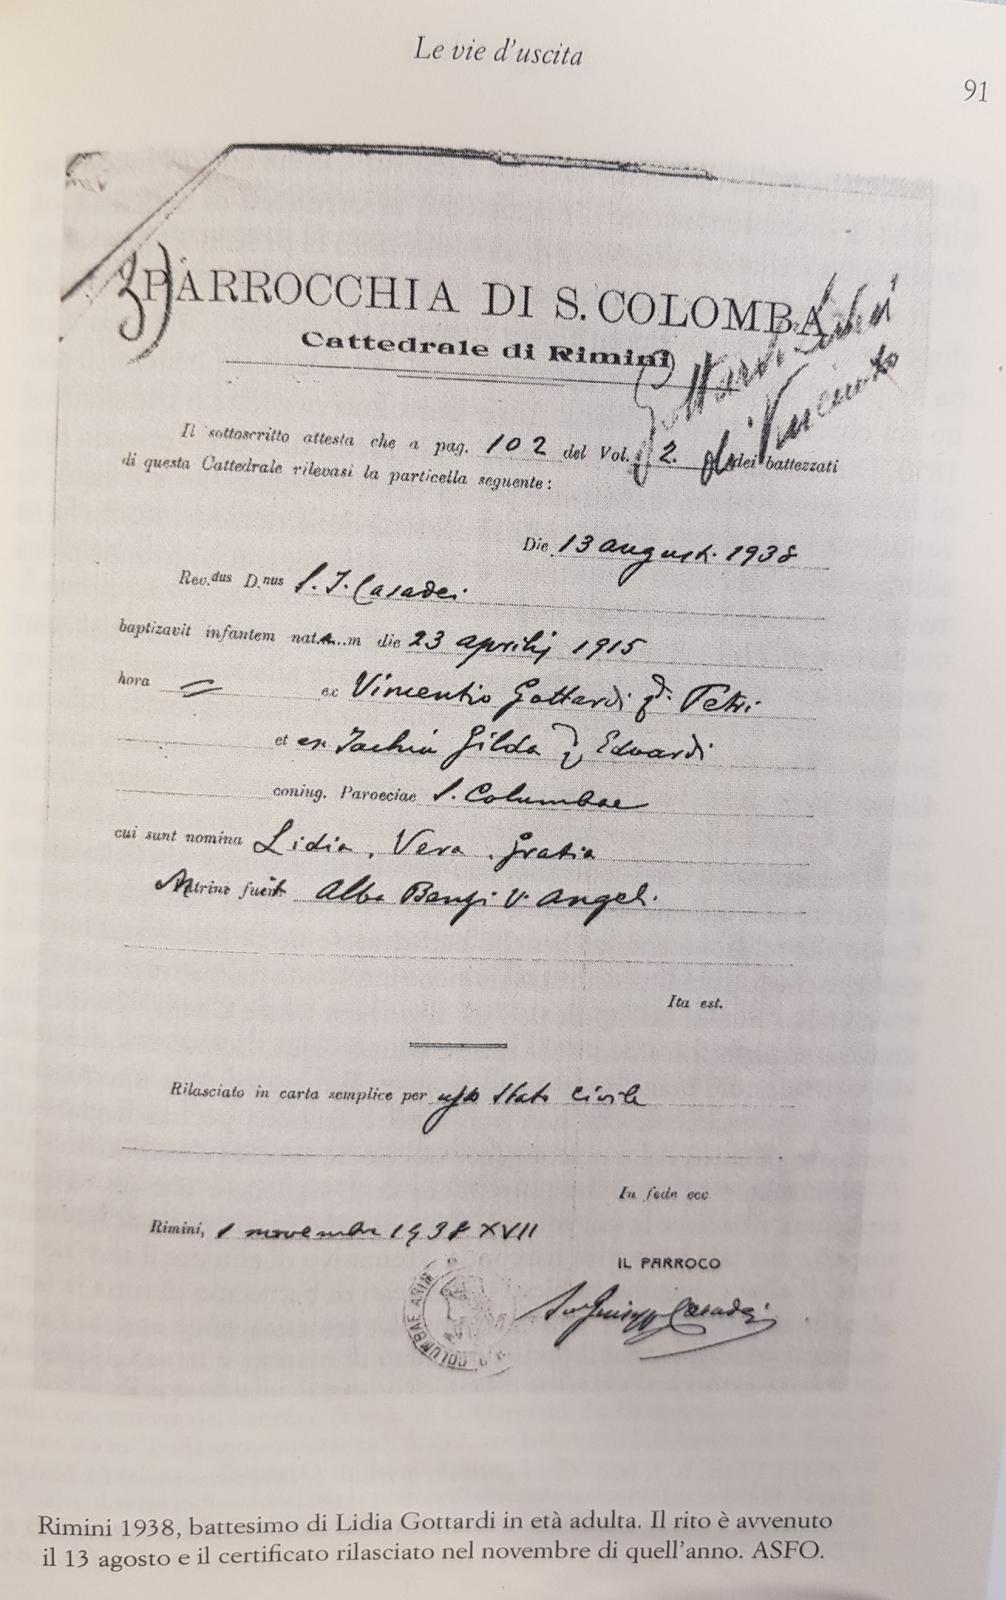 Le vie d'uscita
91
3)
PARROCCHIA DI S. COLOMBA
Cattedrale di Rimini
Gottardi Lidia
di Vincenzo
Il sottoscritto attesta che a pag. 102 del Vol. 2. dei battezzati
di questa Cattedrale rilevasi la particella seguente:
Die 13 augusti 1938
Rev.dus D.nus S. J. Casadei
baptizavit infantem natam die 23 aprilis 1915
hora = ex Vincentio Gottardi q. Petri
et ex Jachia Gilda q. Eduardi
coniug. Paroeciae S. Columbae
cui sunt nomina Lidia, Vera, Gratia
Matrina fuit Alba Bengi V. Angeli
Ita est.
Rilasciato in carta semplice per uso Stato civile
In fede ecc
Rimini, 1 novembre 1938 XVII
IL PARROCO
Giuseppe Casadei
COLUMBAE ARIM
Rimini 1938, battesimo di Lidia Gottardi in età adulta. Il rito è avvenuto
il 13 agosto e il certificato rilasciato nel novembre di quell'anno. ASFO.